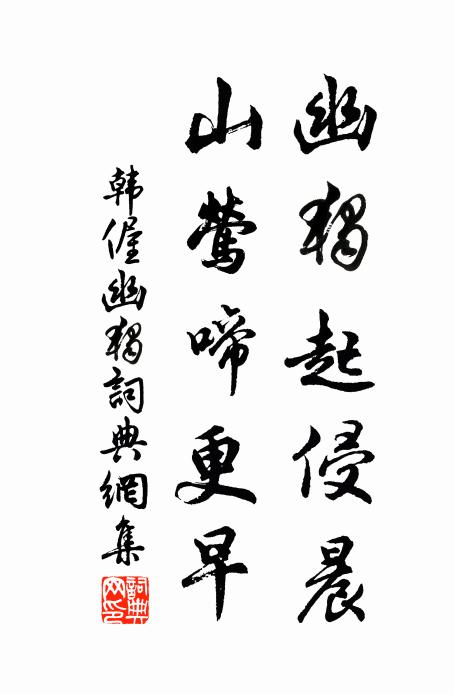 幽獨起侵晨
山鶯啼更早
韓偓幽獨詞典網集
詞典網印